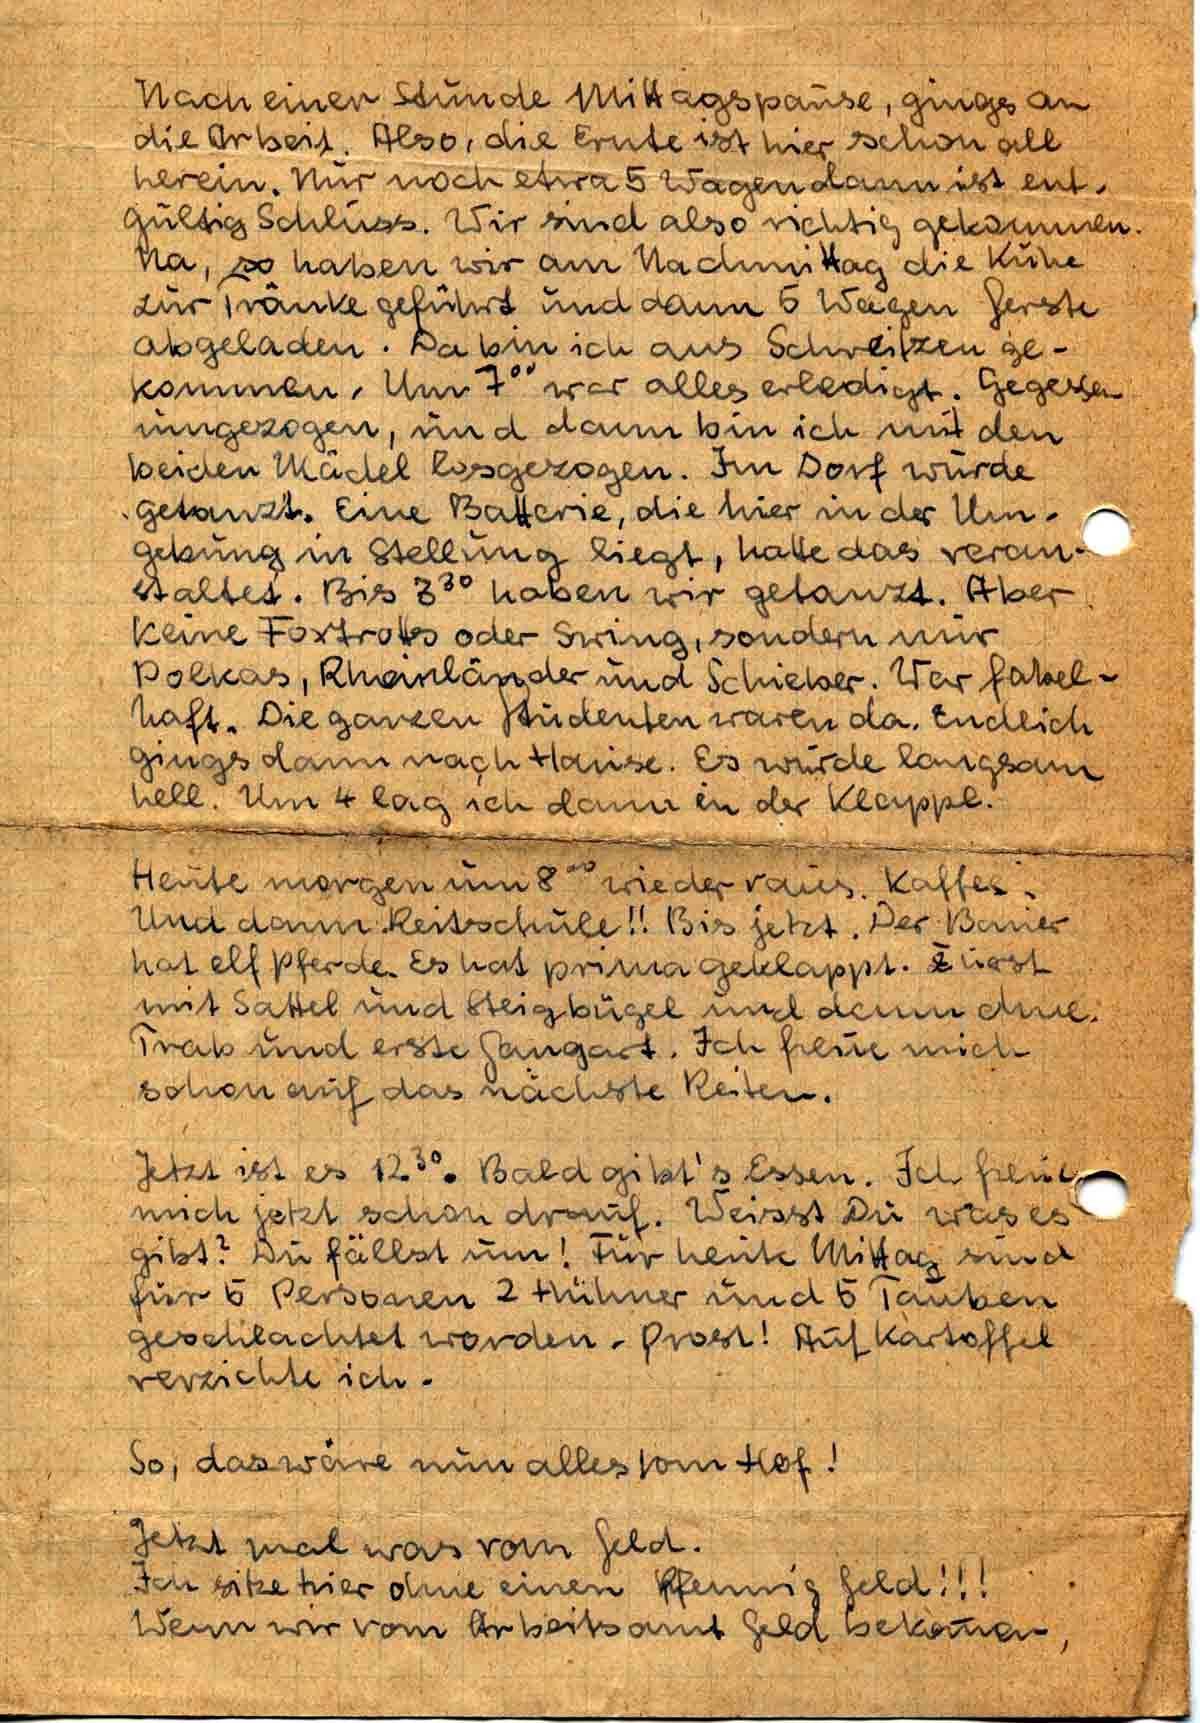 Nach einer Stunde Mittagspause, gings an
die Arbeit. Also, die Ernte ist hier schon all
herein. Nur noch etwa 5 Wagen dann ist ent-
gültig Schluss. Wir sind also richtig gekommen.
Na, so haben wir am Nachmittag die Kühe
zur Tränke geführt und dann 5 Wagen Gerste
abgeladen. Da bin ich aus Schweitzen ge-
kommen. Um 7⁰⁰ war alles erledigt. Gegessen
umgezogen, und dann bin ich mit den
beiden Mädel losgezogen. Im Dorf wurde
getanzt. Eine Batterie, die hier in der Um-
gebung in Stellung liegt, hatte das veran-
staltet. Bis 3³⁰ haben wir getanzt. Aber
keine Foxtrotts oder Swing, sondern nur
Polkas, Rheinländer und Schieber. War fabel-
haft. Die ganzen Studenten waren da. Endlich
gings dann nach Hause. Es wurde langsam
hell. Um 4 lag ich dann in der Klappe.
Heute morgen um 8⁰⁰ wieder raus. Kaffee.
Und dann Reitschule!! Bis jetzt. Der Bauer
hat elf Pferde. Es hat prima geklappt. Zuerst
mit Sattel und Steigbügel und dann ohne.
Trab und erste Gangart. Ich freue mich
schon auf das nächste Reiten.
Jetzt ist es 12.³⁰. Bald gibt's Essen. Ich freue
mich jetzt schon drauf. Weisst Du was es
gibt? Du fällst um! Für heute Mittag sind
für 5 Personen 2 Hühner und 5 Tauben
geschlachtet worden. Prost! Auf Kartoffel
verzichte ich.
So, das wäre nun alles vom Hof!
Jetzt mal was vom Geld.
Ich sitze hier ohne einen Pfennig Geld!!!
Wenn wir vom Arbeitsamt Geld bekom̄en,